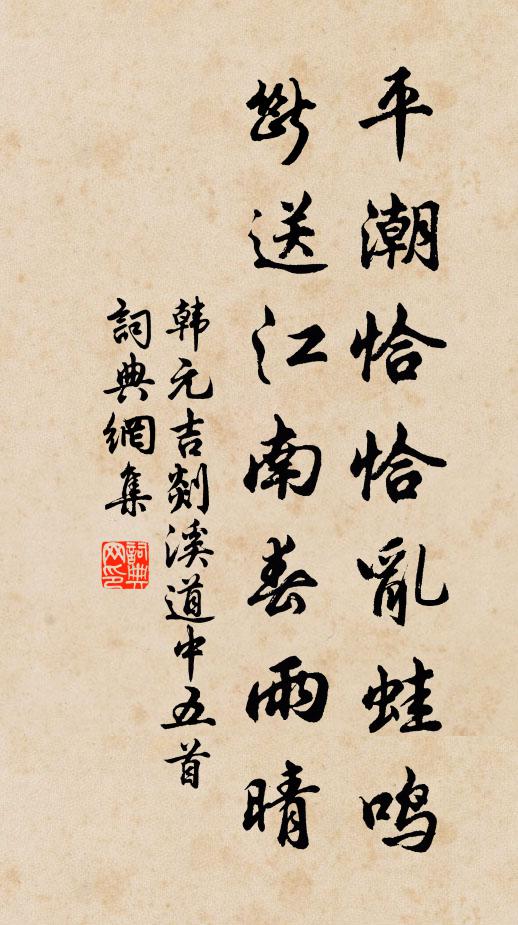 平潮恰恰亂蛙鸣
斷送江南春雨晴
韩元吉剡溪道中五首
詞典網集
詞典
网印